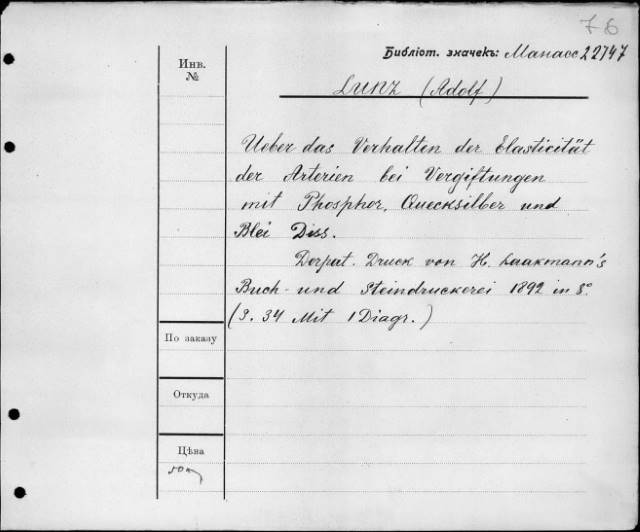 76
Библіот. значекъ: Манасс 22747
Инв.
№
Lunz (Adolf)
Ueber das Verhalten der Elasticität
der Arterien bei Vergiftungen
mit Phosphor, Quecksilber und
Blei Diss.
Dorpat. Druck von H. Laakmann's
Buch- und Steindruckerei 1892 in 8°
(S. 34 Mit 1 Diagr.)
По заказу
Откуда
Цѣна